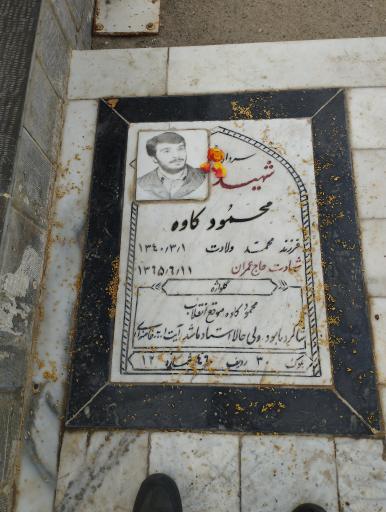 سردار
شهید
محمود کاوه
فرزند محمد ولادت ۱۳۴۰/۳/۱
شهادت حاج عمران ۱۳۶۵/۶/۱۱
گلواژه
محمود کاوه موقع انقلاب
شاگرد ما بود، ولی حالا استاد ما شد. آیت ا... خامنه‌ای
بلوک ۳۰ ردیف ۴۶ شماره ۱۲